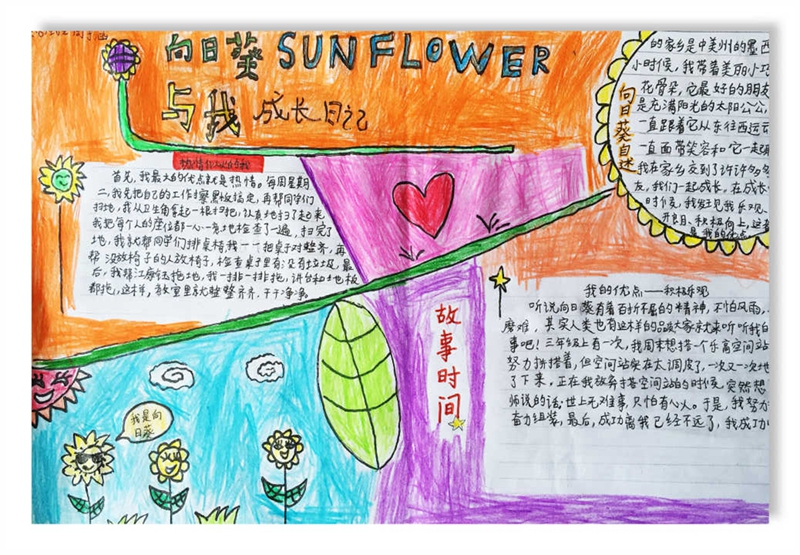 向日葵 SUNFLOWER
与我 成长日记
首先,我最大的优点就是热情。每周星期
二,我先把自己的工作擦黑板搞定,再帮同学们
扫地,我从卫生角拿起一根扫把,认真地扫了起来
我把每个人的座位都一心一意地检查了一遍,扫完了
地,我就帮同学们排桌椅我一一把桌子对整齐,再
帮没放椅子的人放椅子,检查桌子里有没有垃圾,最
后,我精江房伍拖地,我一排一排拖,讲台和地板
都拖,这样,教室里就整整齐齐,干干净净。
的家乡是中美州的墨西
小时候,我带着美丽小巧
花骨朵,它最好的朋友
是充满阳光的太阳公公,
一直跟着它从东往西运
一直面带笑容和它一起
我在家乡交到了许许多多
友,我们一起成长,在成长
时候,我发现我乐观、
开朗、积极向上,这
是我的优点
向日葵自述
我的优点——积极乐观
听说向日葵有着百折不屈的精神,不怕风雨,
磨难,其实人类也有这样的品质大家就来听听我的
事吧!三年级上有一次,我周末想搭一个乐高空间站
努力拼搭着,但空间站实在太调皮了,一次又一次地
了下来,正在我放弃搭空间站的时候,突然想
师说的话:世上无难事,只怕有心人。于是,我努力
奋力组装,最后,成功离我已经不远了,我成功
故事时间
我是向
日葵